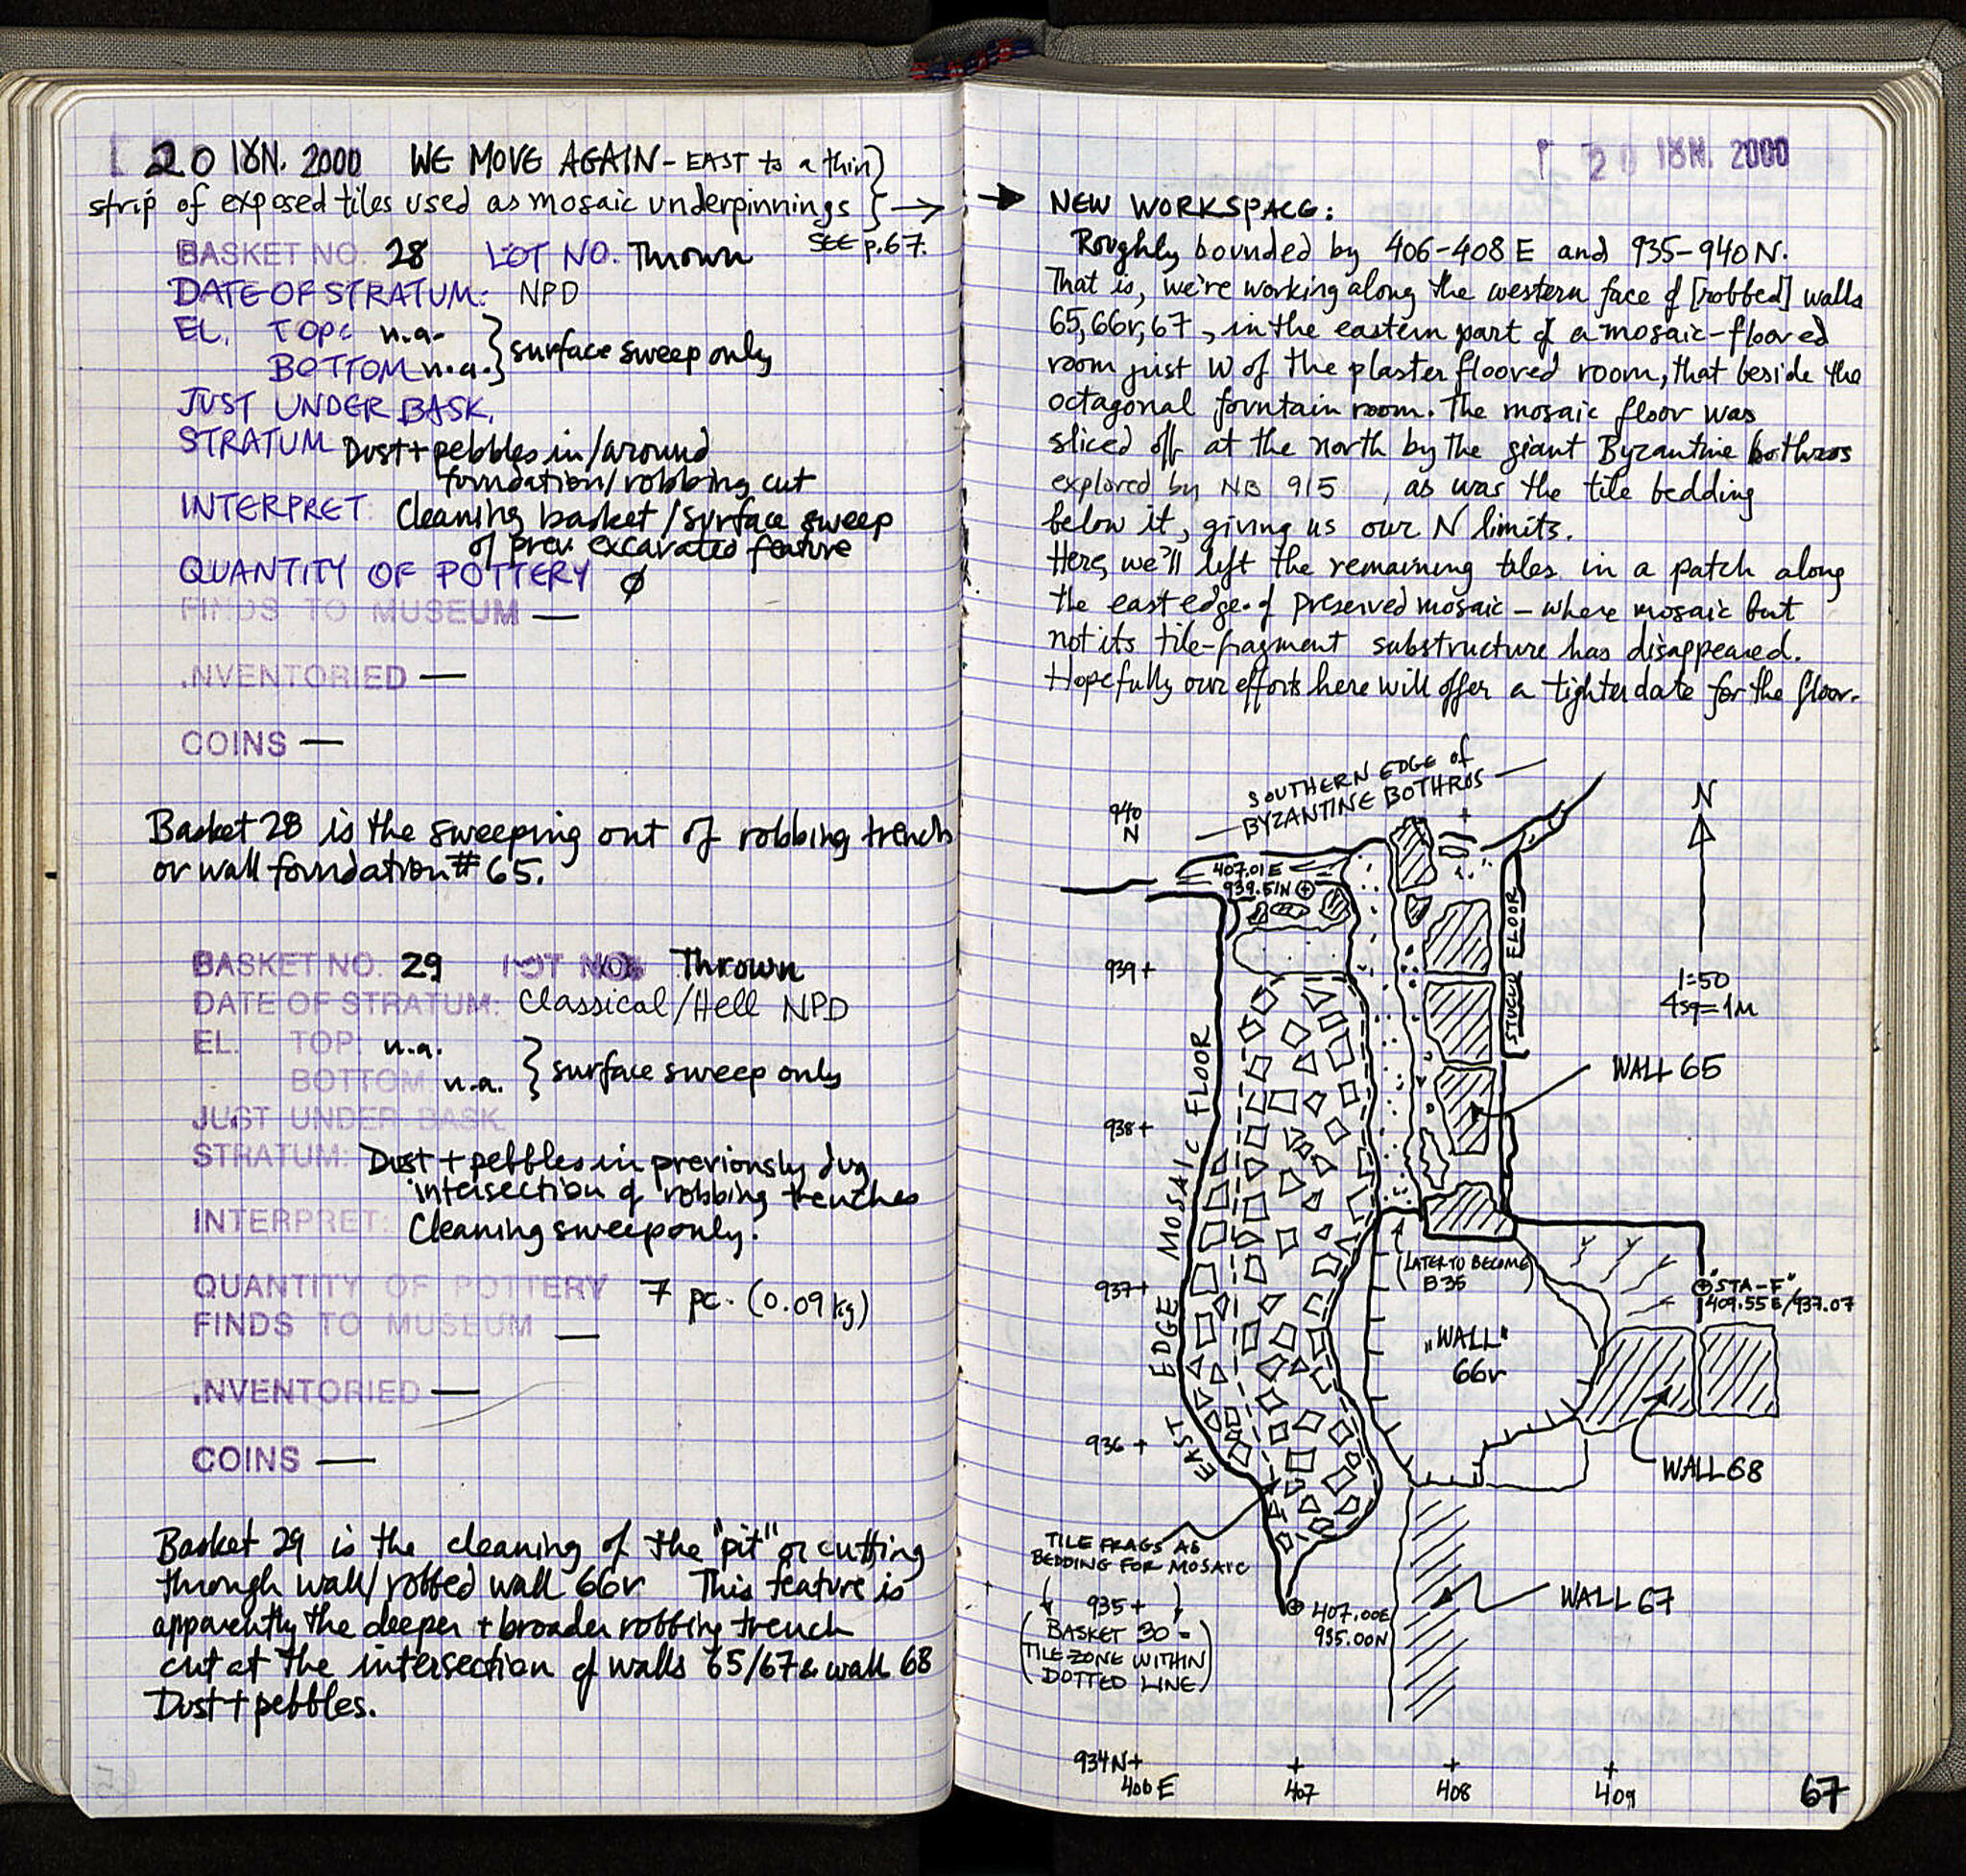 20 ΙȢΝ. 2000 WE MOVE AGAIN - EAST to a thin
strip of exposed tiles used as mosaic underpinnings →
SEE p.67.
BASKET NO. 28 LOT NO. Thrown
DATE OF STRATUM: NPD
EL. TOP: n.a.
BOTTOM n.a. } surface sweep only
JUST UNDER BASK.
STRATUM Dust + pebbles in/around
foundation/robbing cut
INTERPRET: Cleaning basket / surface sweep
of prev. excavated feature
QUANTITY OF POTTERY ∅
FINDS TO MUSEUM —
INVENTORIED —
COINS —
Basket 28 is the sweeping out of robbing trench
or wall foundation #65.
BASKET NO. 29 LOT NO. Thrown
DATE OF STRATUM: Classical/Hell NPD
EL. TOP n.a.
BOTTOM n.a. } surface sweep only
JUST UNDER BASK.
STRATUM: Dust + pebbles in previously dug
intersection of robbing trenches
INTERPRET: Cleaning sweep only.
QUANTITY OF POTTERY 7 pc. (0.09 kg)
FINDS TO MUSEUM —
INVENTORIED —
COINS —
Basket 29 is the cleaning of the "pit" or cutting
through wall/robbed wall 66r This feature is
apparently the deeper + broader robbing trench
cut at the intersection of walls 65/67 & wall 68
Dust + pebbles.
20 ΙȢΝ. 2000
→ NEW WORKSPACE:
Roughly bounded by 406-408 E and 935-940 N.
That is, we're working along the western face of [robbed] walls
65, 66r, 67, in the eastern part of a mosaic-floored
room just W of the plaster floored room, that beside the
octagonal fountain room. The mosaic floor was
sliced off at the north by the giant Byzantine bothros
explored by NB 915 , as was the tile bedding
below it, giving us our N limits.
Here, we'll left the remaining tiles in a patch along
the east edge of preserved mosaic - where mosaic but
not its tile-fragment substructure has disappeared.
Hopefully our efforts here will offer a tighter date for the floor.
SOUTHERN EDGE of
BYZANTINE BOTHROS
940
N
N
407.01 E
939.51N
939 +
STUCCO FLOOR
1=50
4sq=1M
WALL 65
938 +
EAST EDGE MOSAIC FLOOR
937 +
(LATER TO BECOME
B 35)
"STA-F"
409.55 E/937.07
"WALL"
66r
936 +
WALL 68
TILE FRAGS AS
BEDDING FOR MOSAIC
935 +
(BASKET 30 =
TILE ZONE WITHIN
DOTTED LINE)
407.00E
935.00N
WALL 67
934N +
406 E
407
408
409
67